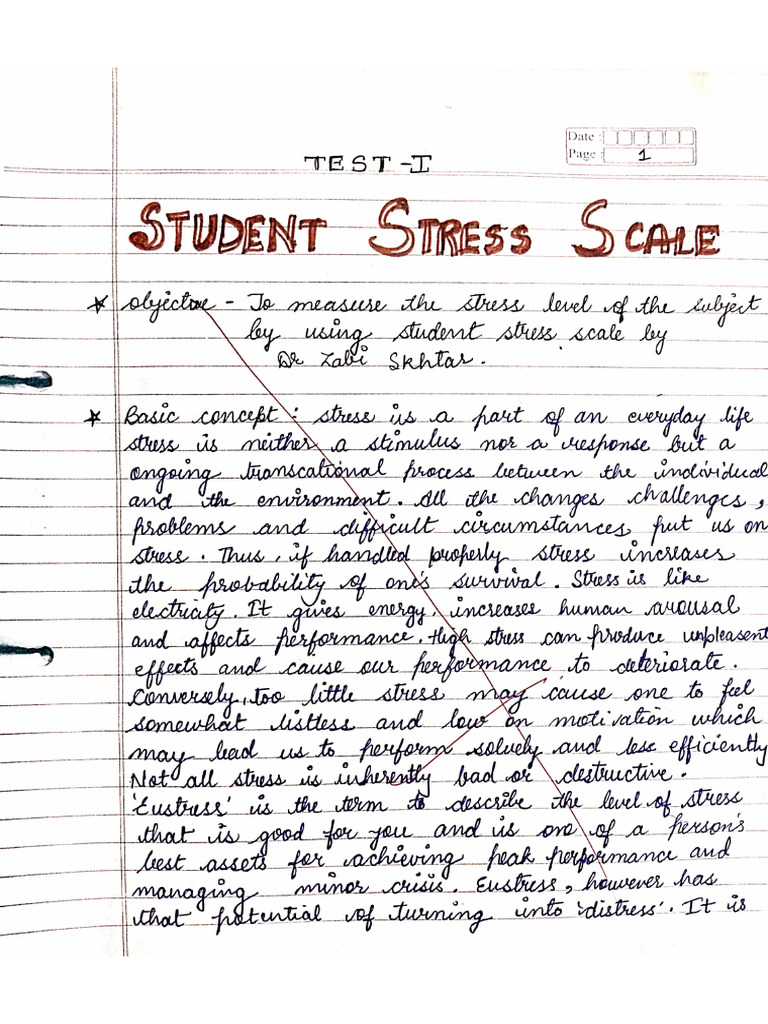 Date :
Page : 1
TEST-I
STUDENT STRESS SCALE
* Objective - To measure the stress level of the subject
by using student stress scale by
Dr Zabi Skhtar.
* Basic concept : stress is a part of an everyday life
stress is neither a stimulus nor a response but a
ongoing transcational process between the individual
and the environment. All the changes challenges,
problems and difficult circumstances put us on
stress. Thus, if handled properly stress increases
the probability of one's survival. Stress is like
electricity. It gives energy, increases human arousal
and affects performance. High stress can produce unpleasent
effects and cause our performance to deteriorate.
Conversely, too little stress may cause one to feel
somewhat listless and low on motivation which
may lead us to perform soluely and less efficiently
Not all stress is inherently bad or destructive.
'Eustress' is the term to describe the level of stress
that is good for you and is one of a person's
best assets for achieving peak performance and
managing minor crisis. Eustress, however has
that potential of turning into 'distress'. It is